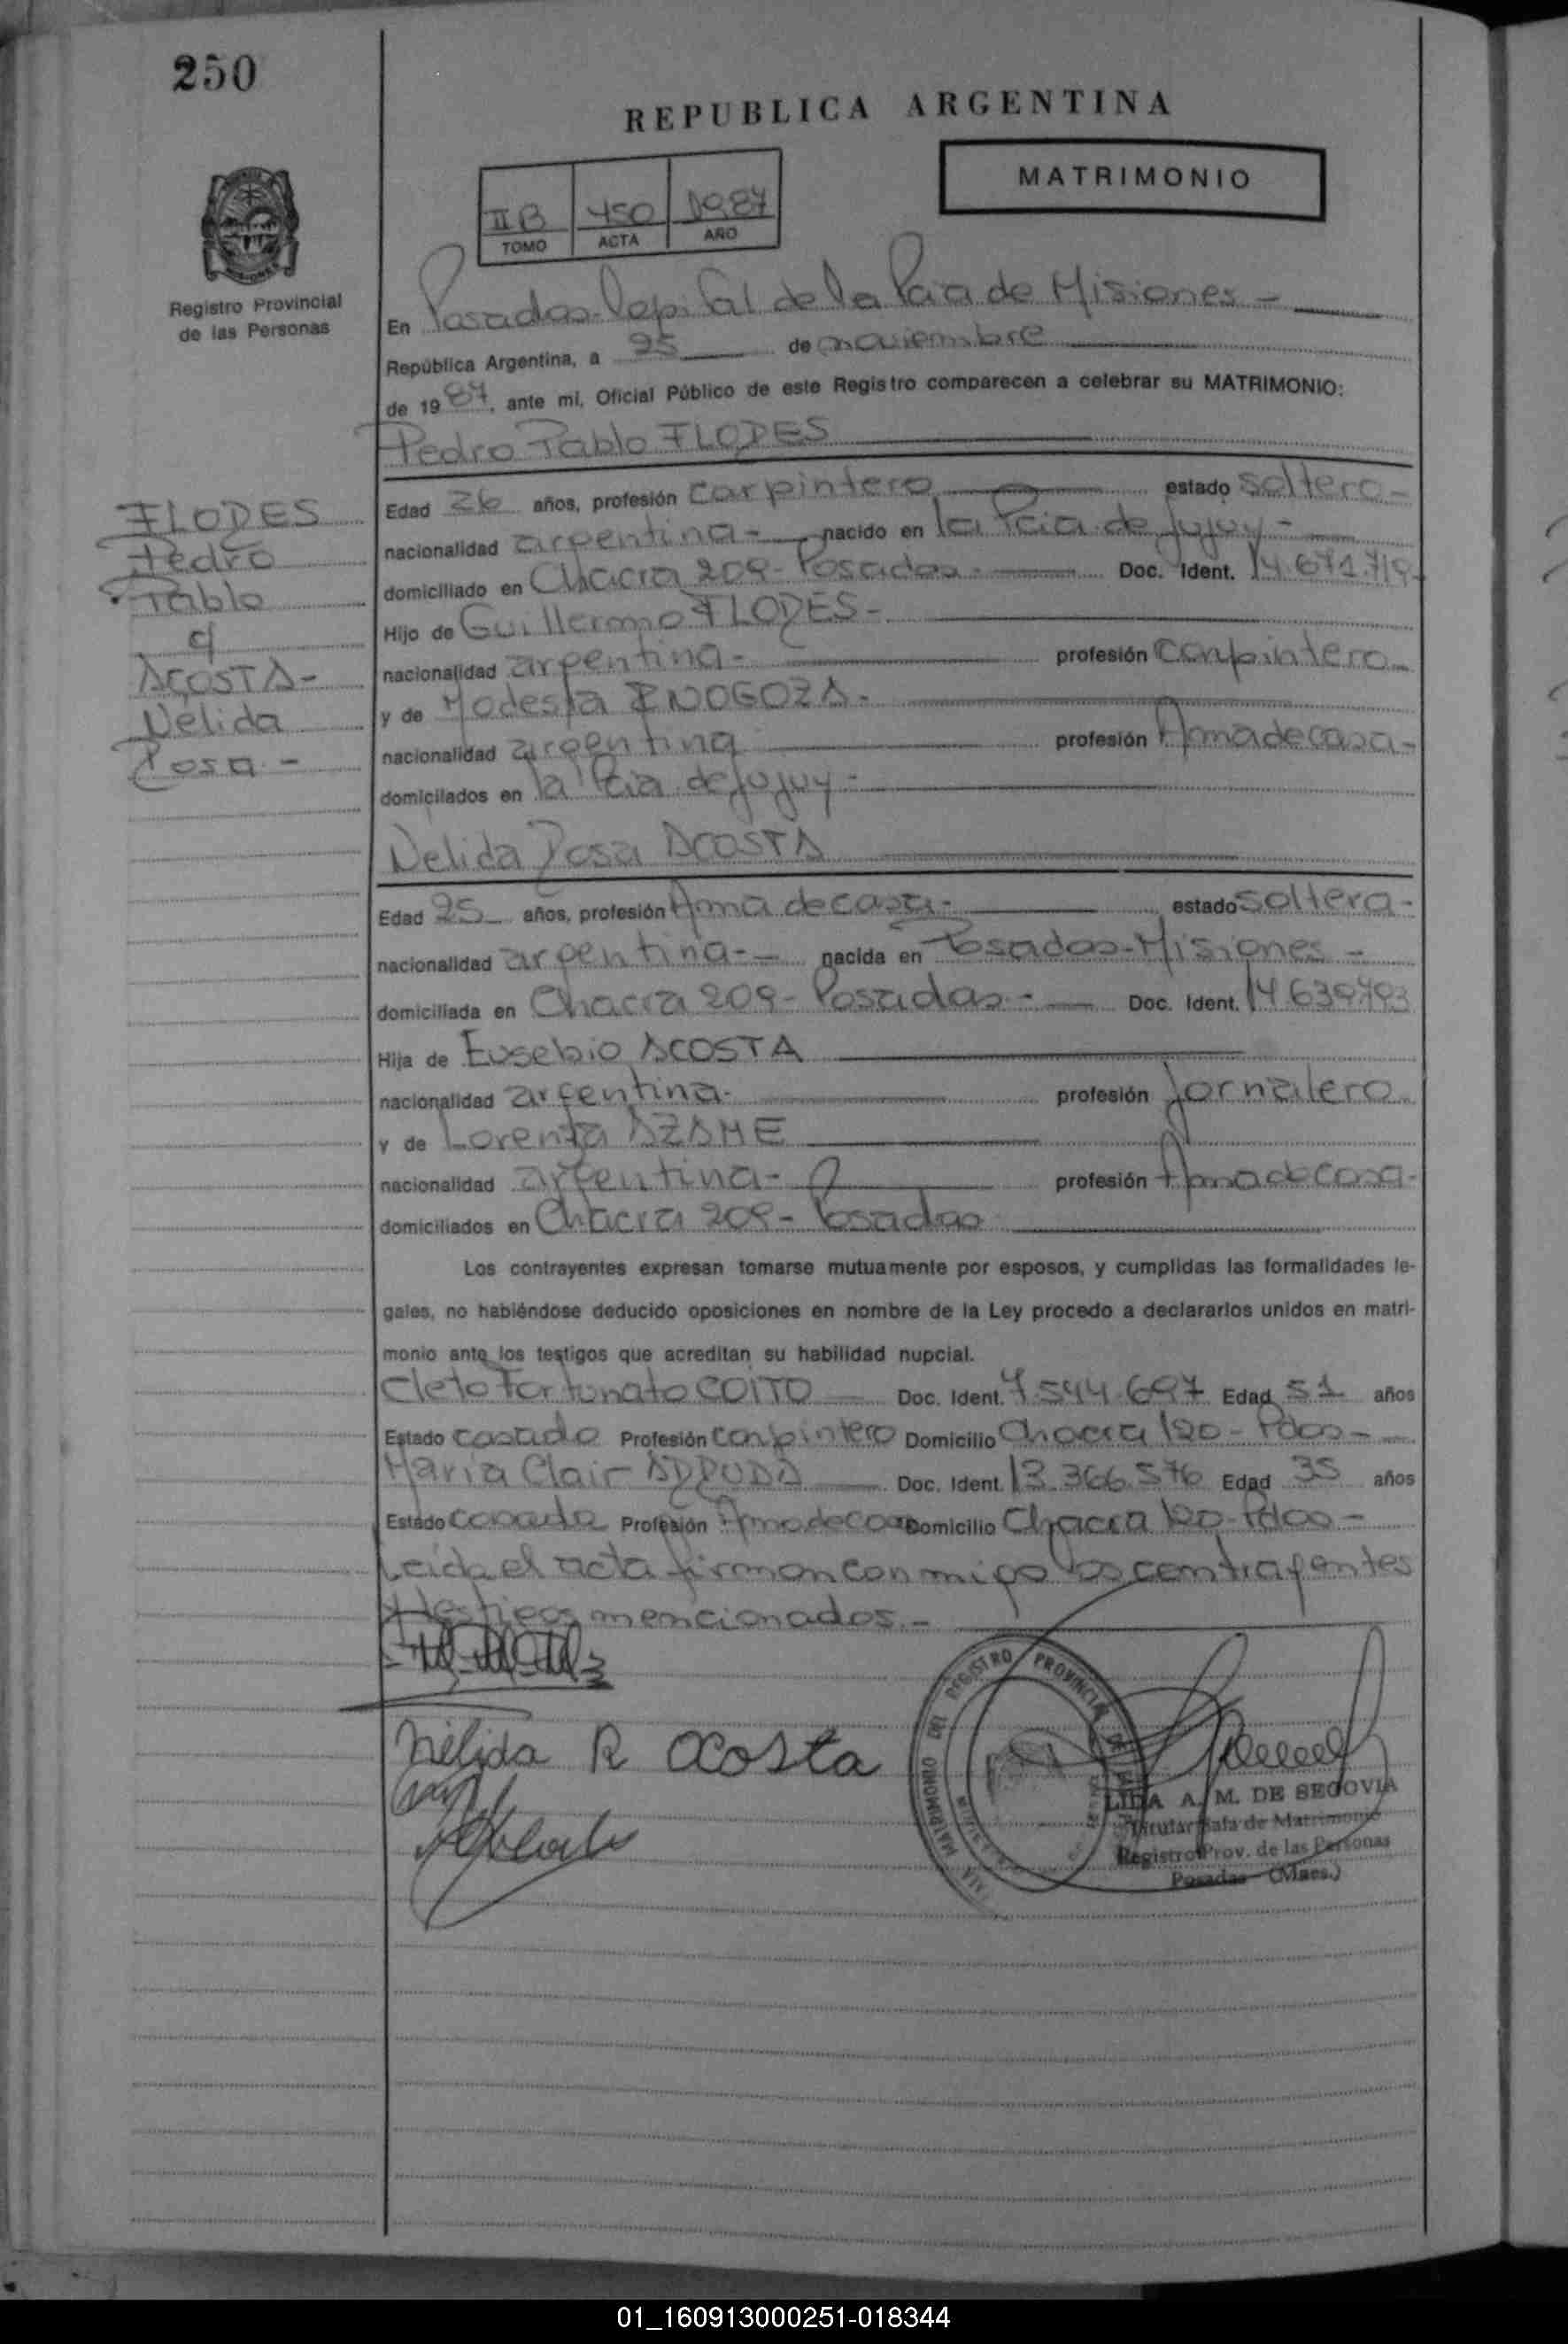 250
REPUBLICA ARGENTINA
MATRIMONIO
II B 450 1987
TOMO ACTA AÑO
Registro Provincial
de las Personas
En Posadas-Capital de la Pcia de Misiones -
República Argentina, a 25 de noviembre
de 1987, ante mí, Oficial Público de este Registro comparecen a celebrar su MATRIMONIO:
Pedro Pablo FLORES
FLORES
Pedro
Pablo
c/
ACOSTA-
Nélida
Rosa -
Edad 26 años, profesión carpintero estado soltero-
nacionalidad argentina- nacido en la Pcia de Jujuy-
domiciliado en Chacra 209- Posadas- Doc. Ident. 14.671.719-
Hijo de Guillermo FLORES-
nacionalidad argentina- profesión carpintero-
y de Modesta
nacionalidad argentina profesión Ama de casa-
domicilados en la Pcia de Jujuy-
Nelida Rosa ACOSTA
Edad 25 años, profesión Ama de casa- estado soltera-
nacionalidad argentina- nacida en Posadas-Misiones -
domiciliada en Chacra 209- Posadas- Doc. Ident. 14.639.793
Hija de Eusebio ACOSTA
nacionalidad argentina- profesión Jornalero
y de Lorenza AZAME
nacionalidad argentina- profesión Ama de casa-
domiciliados en Chacra 209- Posadas
Los contrayentes expresan tomarse mutuamente por esposos, y cumplidas las formalidades le-
gales, no habiéndose deducido oposiciones en nombre de la Ley procedo a declararlos unidos en matri-
monio ante los testigos que acreditan su habilidad nupcial.
Cleto Fortunato COITO Doc. Ident. 7.544.697 Edad 51 años
Estado casado Profesión carpintero Domicilio Chacra 120- Pdas-
Maria Clair ARRUDA Doc. Ident. 13.366.576 Edad 35 años
Estado casada Profesión Ama de casa Domicilio Chacra 120- Pdas-
Leida el acta firman conmigo los contrayentes
y testigos mencionados.-
Nélida R acosta
DEL REGISTRO PROVINCIAL DE
LIDA A. M. DE SEGOVIA
Titular Sala de Matrimonio
Registro Prov. de las Personas
Posadas - (Mnes.)
01_160913000251-018344